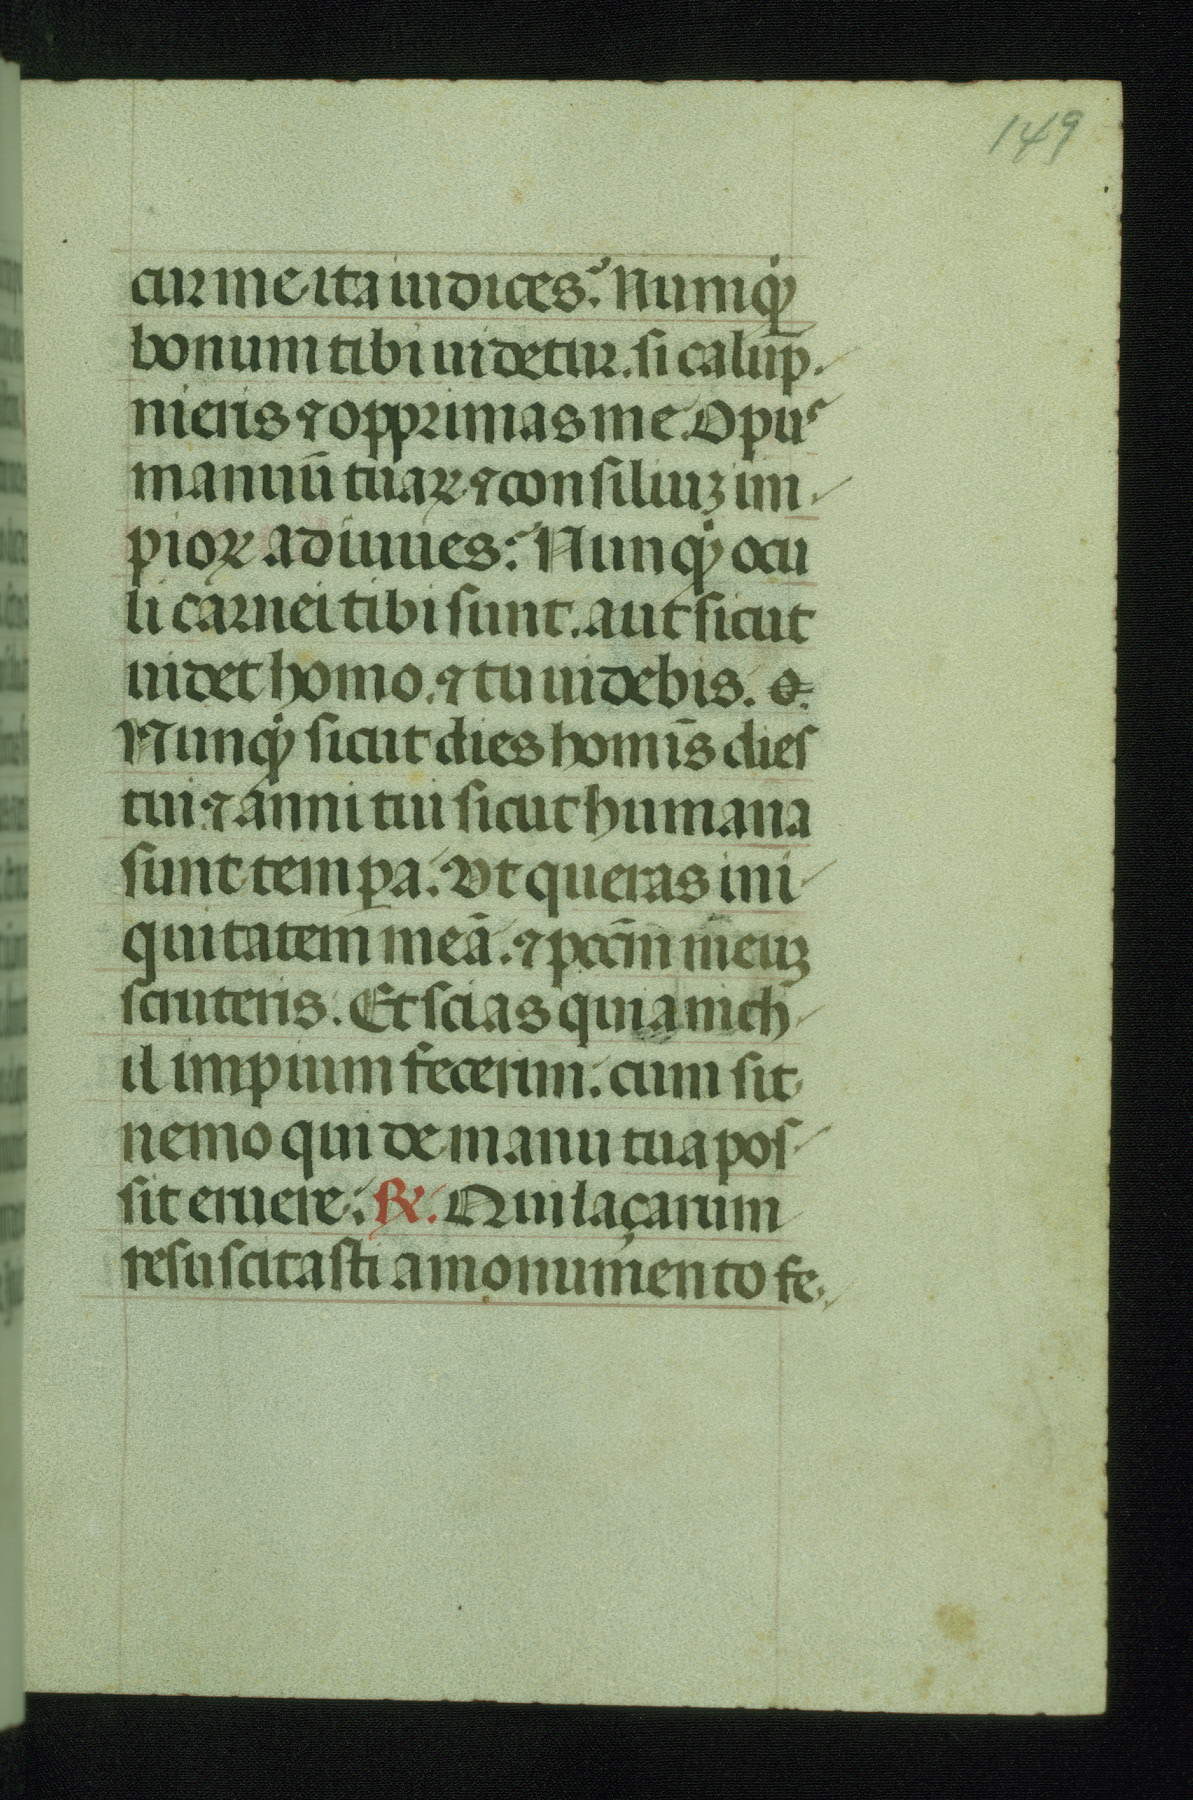 149
cur me ita iudices? Numq͛
bonum tibi uidetur. si calūp-
nieris ⁊ opprimas me. Opus
manuū tuaꝝ ⁊ consiliuꝫ im-
pioꝝ adiuues? Nunq͛ ocu
li carnei tibi sunt. aut sicut
uidet homo. ⁊ tu uidebis.
Nunq͛ sicut dies homīs dies
tui ⁊ anni tui sicut humana
sunt temꝑa. Vt queras ini-
quitatem meā. ⁊ pccm̄ meuꝫ
scruteris. Et scias quia nich-
il impium fecerim. cum sit
nemo qui de manu tua pos-
sit eruere. ℟. Qui laçarum
resuscitasti a monumento fe-